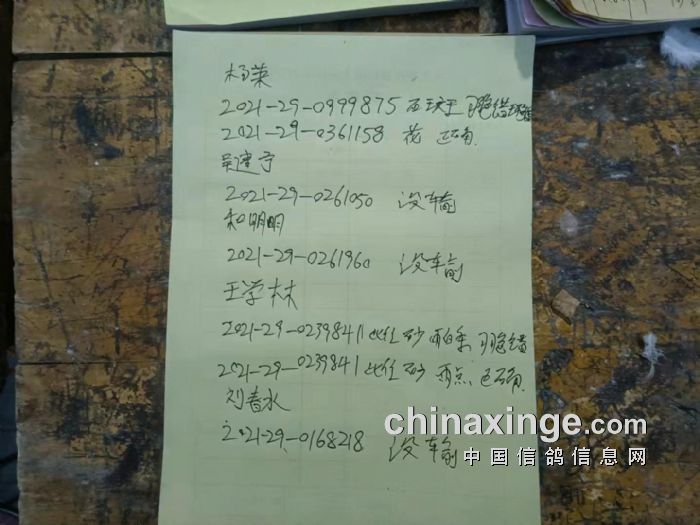 杨荣
2021-29-0999875 西 现鸽错环错
2021-29-0361158 花 正确
吴建宁
2021-29-0261050 没车输
和明明
2021-29-0261960 没车输
王学林
2021-29-0239841 此位 砂 雨点 现鸽错
2021-29-0239841 此位 砂 雨点 正确
刘春水
2021-29-0168218 没车输
chinaxinge.com
中国信鸽信息网